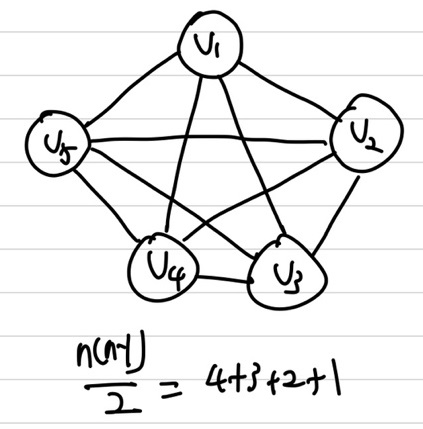 V1
V5
V2
V4
V3
n(n-1)/2 = 4+3+2+1